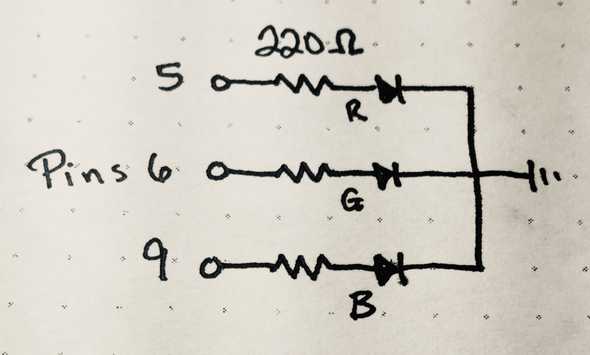 220Ω
5
R
Pins 6
G
9
B